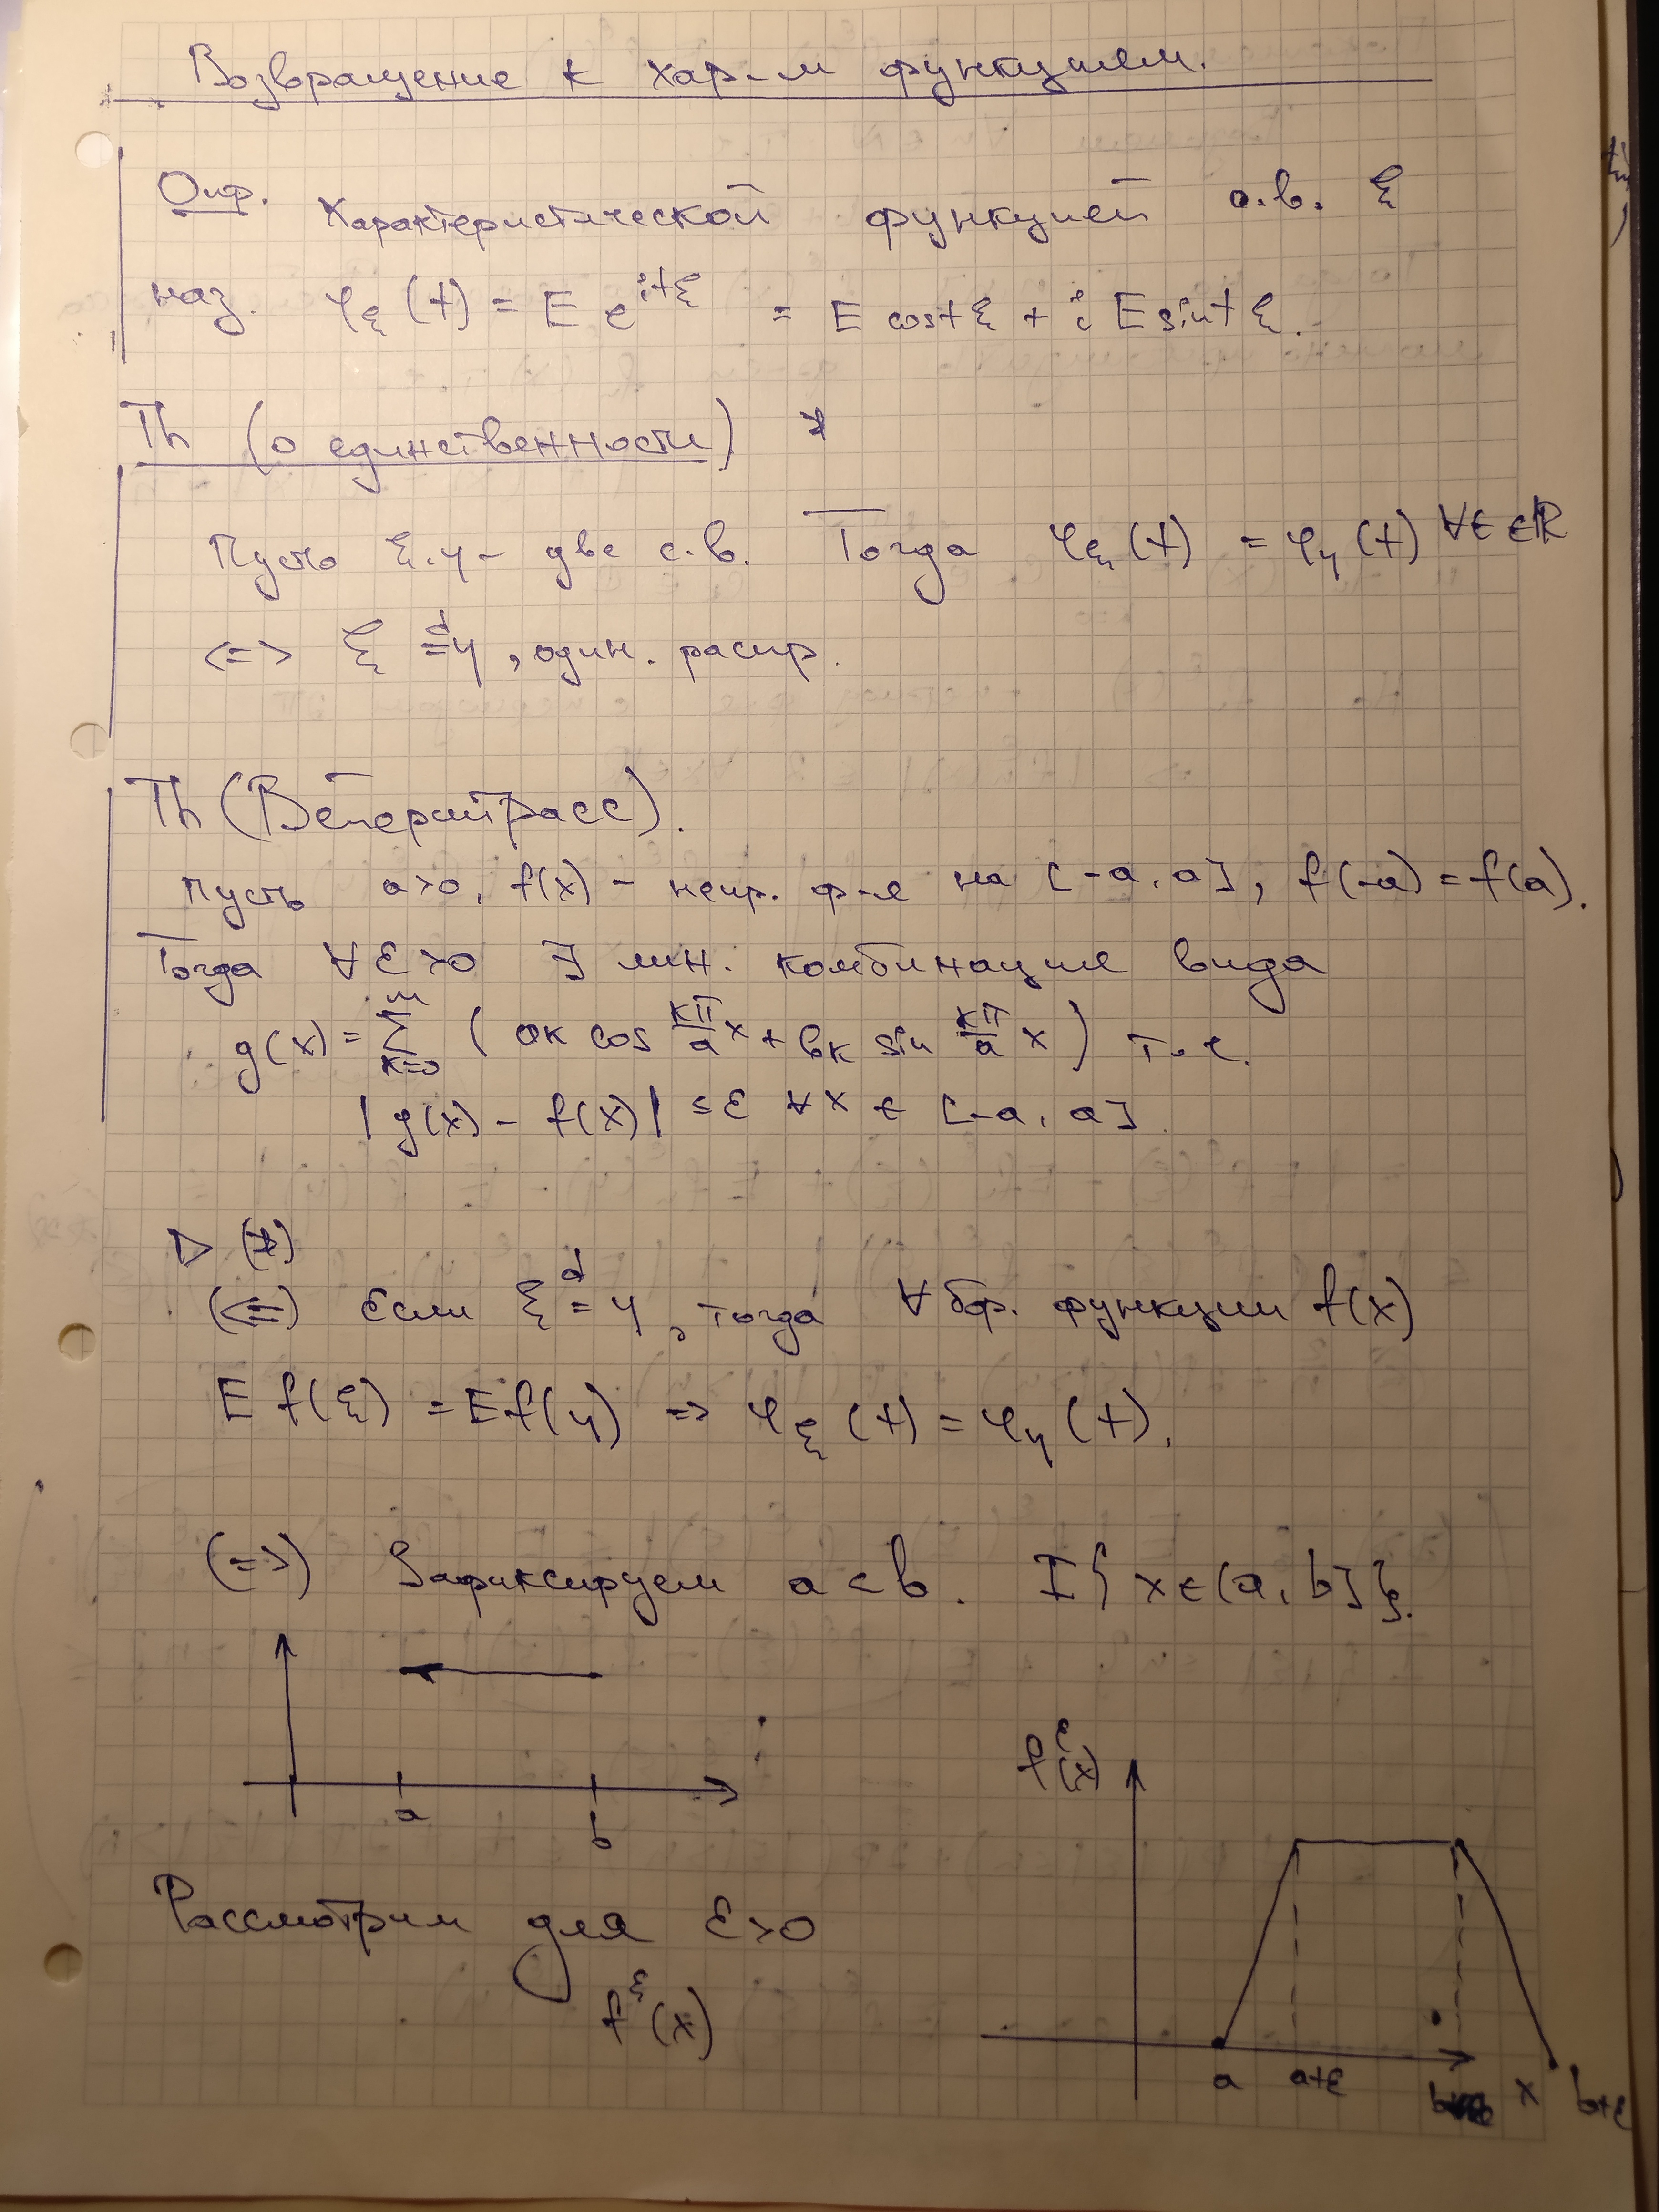 Возвращение к хар-м функциям.
Опр. Характеристической функцией с.в. ξ
наз. φ_ξ(t) = E e^{itξ} = E cos tξ + i E sin tξ.
Th (о единственности) *
Пусть ξ, η – две с.в. Тогда φ_ξ(t) = φ_η(t) ∀t ∈ ℝ
<=> ξ =^d η, один. распр.
Th (Вейерштрасс).
Пусть a>0, f(x) – непр. ф-я на [-a, a], f(-a) = f(a).
Тогда ∀ε>0 ∃ лин. комбинация вида
g(x) = ∑_{k=0}^{m} (a_k cos (kπ/a) x + b_k sin (kπ/a) x) т.ч.
|g(x) - f(x)| ≤ ε ∀x ∈ [-a, a]
▷ (*)
(<=) Если ξ =^d η, тогда ∀ бор. функции f(x)
E f(ξ) = E f(η) => φ_ξ(t) = φ_η(t).
(=>) Зафиксируем a < b. I{x ∈ (a, b]}.
a b
Рассмотрим для ε>0
f^ε(x)
f^ε(x)
a a+ε b x b+ε